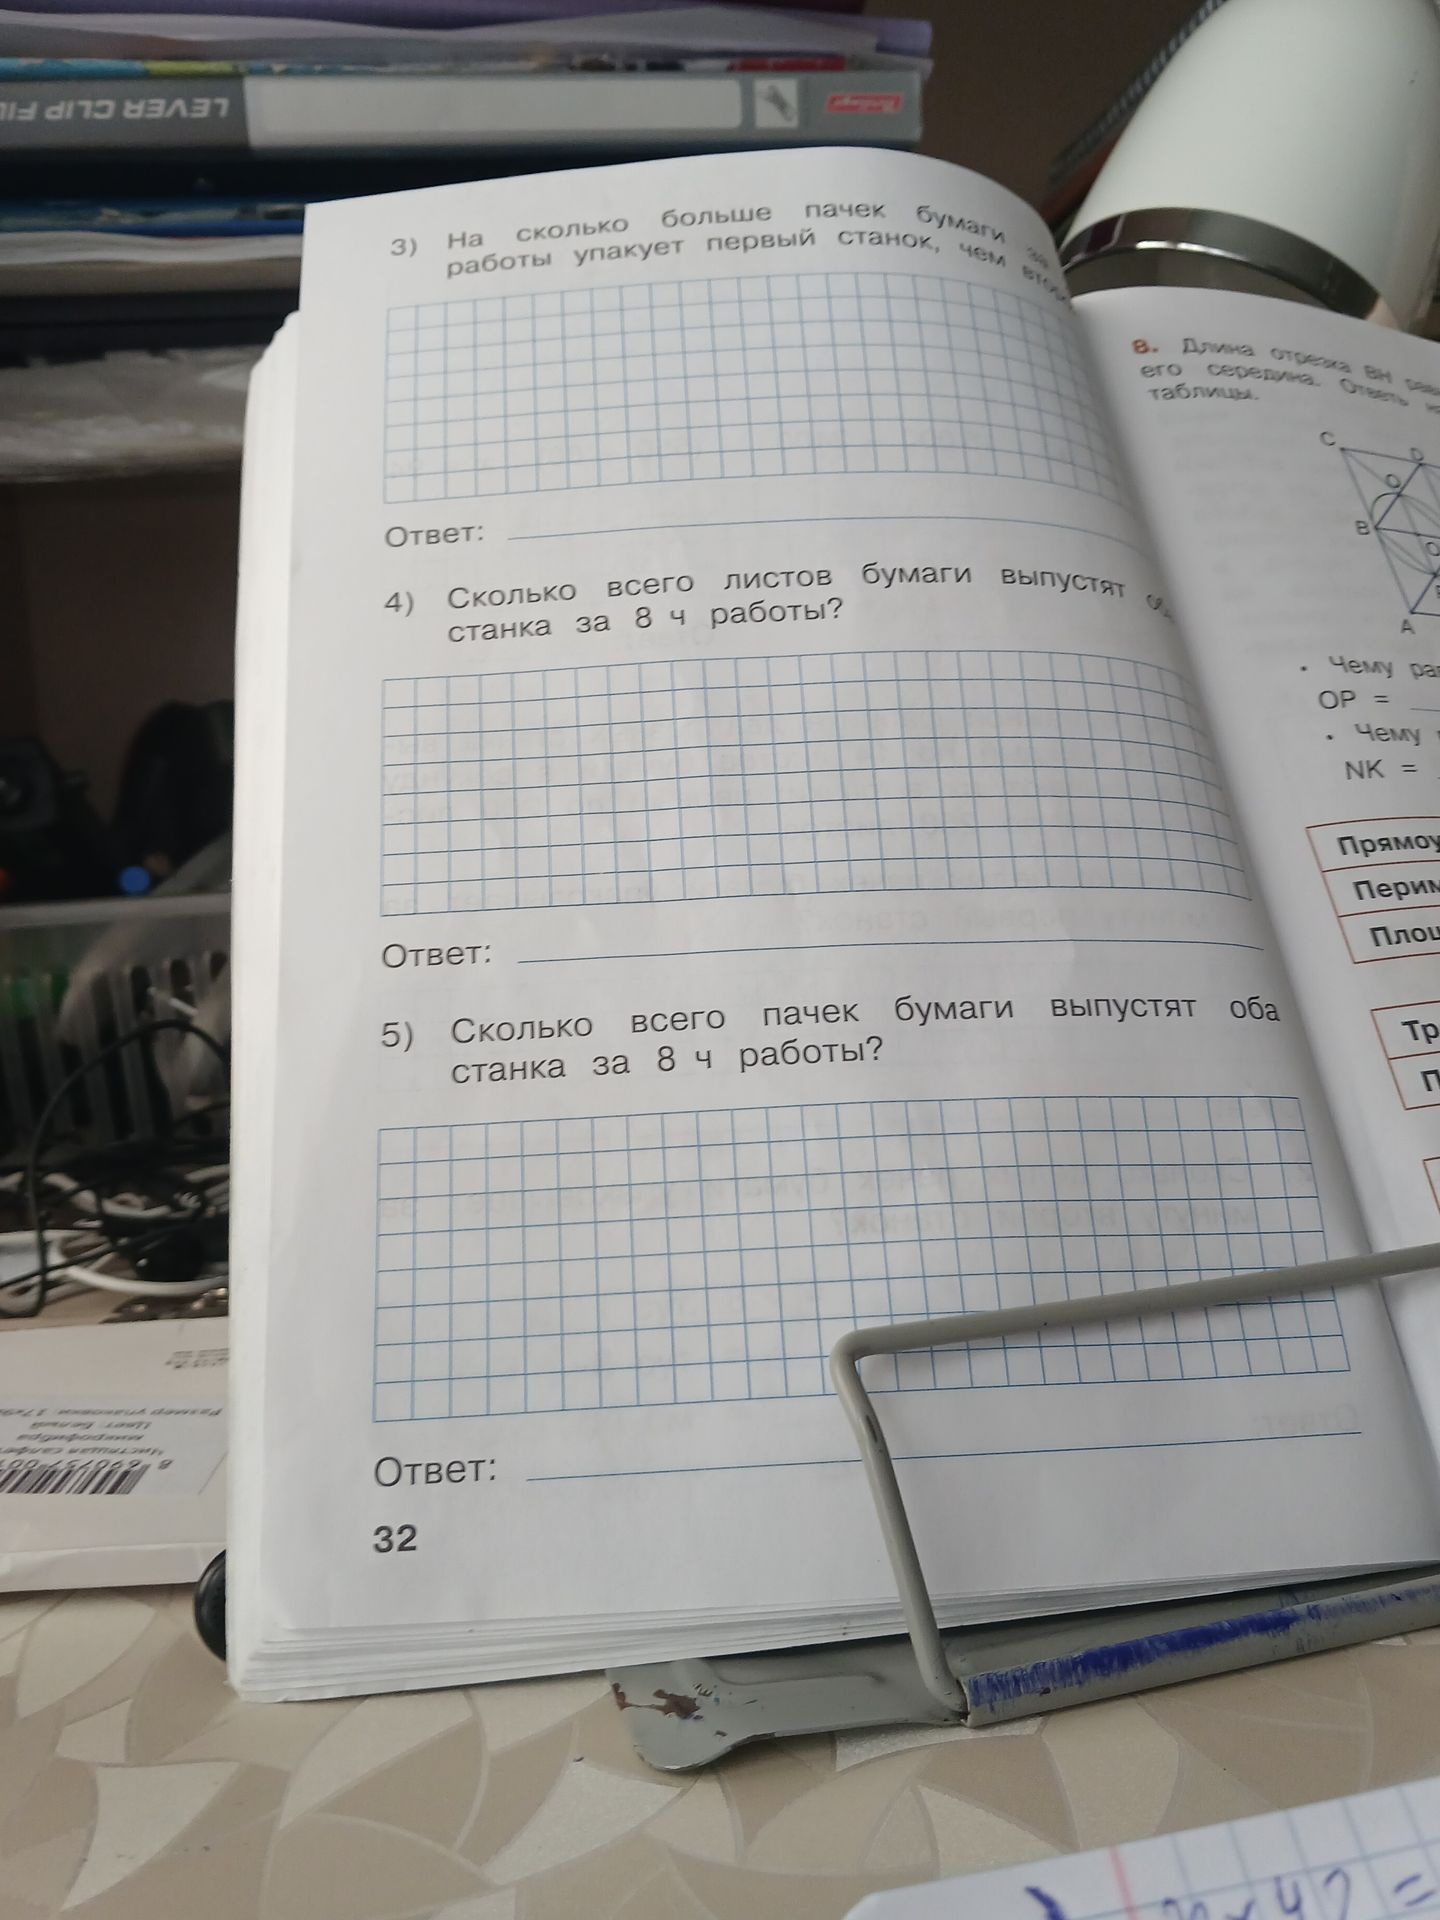 LEVER CLIP FIL
3) На сколько больше пачек бумаги за
работы упакует первый станок, чем
Ответ:
4) Сколько всего листов бумаги выпустят
станка за 8 ч работы?
Ответ:
5) Сколько всего пачек бумаги выпустят оба
станка за 8 ч работы?
Ответ:
32
8. Длина отрезка BH
его середина. Ответь
таблицы.
C
B
A
• Чему
OP =
• Чему
NK =
8 690757
Чистящая
микрофибра
Цвет: Белый
Размер упаковки: